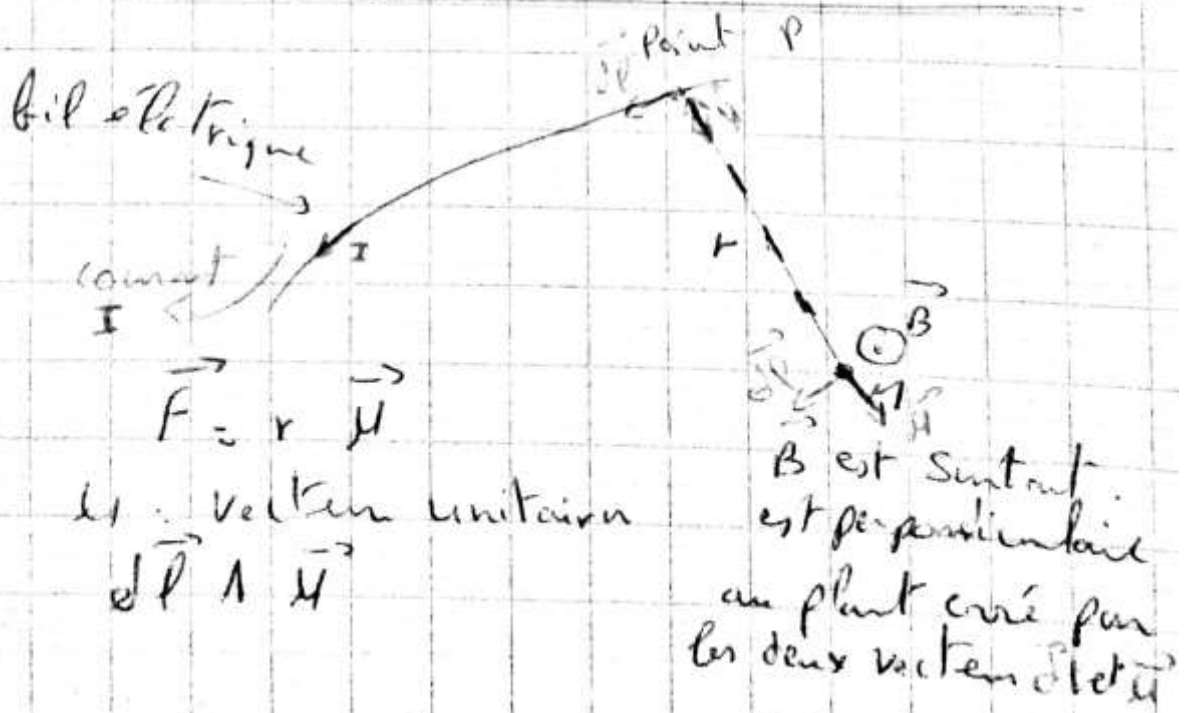 Point P
dl
fil électrique
I
courant
I
r
B
dl
μ
r = r μ
μ : vecteur unitaire
dl Λ μ
B est sortant.
est perpendiculaire
au plant créé par
les deux vecteurs dl et μ